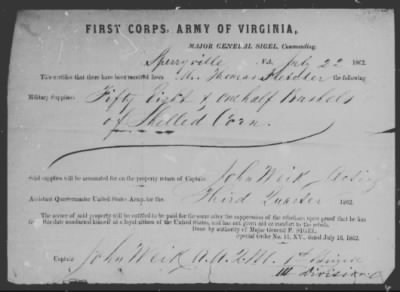 FIRST CORPS, ARMY OF VIRGINIA,
MAJOR GENERAL SIGEL, Commanding.
Sperryville Va. July 22 1862.
This certifies that there have been received from Mr. Thomas the following
Military Supplies: Fifty Eight & one half Bushels
of Shelled Corn.
Said supplies will be accounted for on the property return of Captain John Weik Acting
Assistant Quartermaster United States Army, for the Third Quarter 1862.
The owner of said property will be entitled to be paid for the same after the suppression of the rebellion, upon proof that he has
from this date conducted himself as a loyal citizen of the United States, and has not given aid or comfort to the rebels.
Done by authority of Major General F. SIGEL.
Special Order No. 15, XV., dated July 16, 1862.
Captain John Weik A.A.Q.M. 1st
III Division